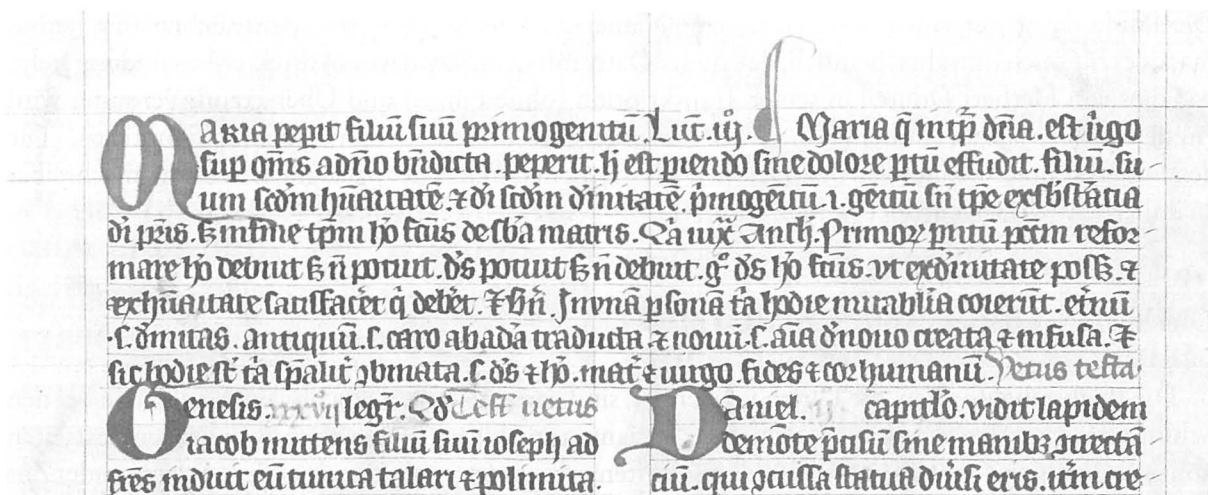 MARIA pepit filiū suū primogenitū Luc̄. ij. Maria q̄ int̄p̄r dn̄a. est ūgo
sup om̄s a dn̄o bn̄dicta. peperit. h̄ est p̄iendo sine dolore p̄tū effudit. filiū. su
um scd̄m hūanitatē. ⁊ di scd̄m diuinitatē. p̄mogēitū. i. gēitū sn̄ tp̄e ex sb̄stācia
di pr̄is. sꝫ in fine tp̄m hō fcūs de sb̄a matris. Q̄a iux̄ Ansh. Primoꝝ pn̄tū pctm̄ refor
mare hō debuit sꝫ n̄ potuit. ds̄ potuit sꝫ n̄ debuit. gͦ ds̄ hō fcūs. vt ex diūitate possꝫ. ⁊
ex hūanitate satisfacēt q̄ debet. ⁊ Bn̄. In vnā psonā t̄a hodie mirabilia coierūt. et̄nū
.s. diuinitas. antiquū. s. caro ab adā traducta ⁊ nouū. s. aīa d̄nouo creata ⁊ infusa. ⁊
sic hodie st̄ t̄a sp̄alit̄ ꝯbinata. s. ds̄ ⁊ hō. mat̄ ⁊ uirgo. fides ⁊ cor humanū. Vetus testa.
Genesis. xxxvij legit̄. Qd̄ Test̄ uetus
iacob mittens filiū suū ioseph ad
fr̄es induit eū tunica talari ⁊ polimita.
Daniel. ij. capitlo. vidit lapidem
de mōte p̄cisū sine manibꝫ ꝯtrectā
ciū. qui ꝯcussa statua diūsi eris. itm̄ cre